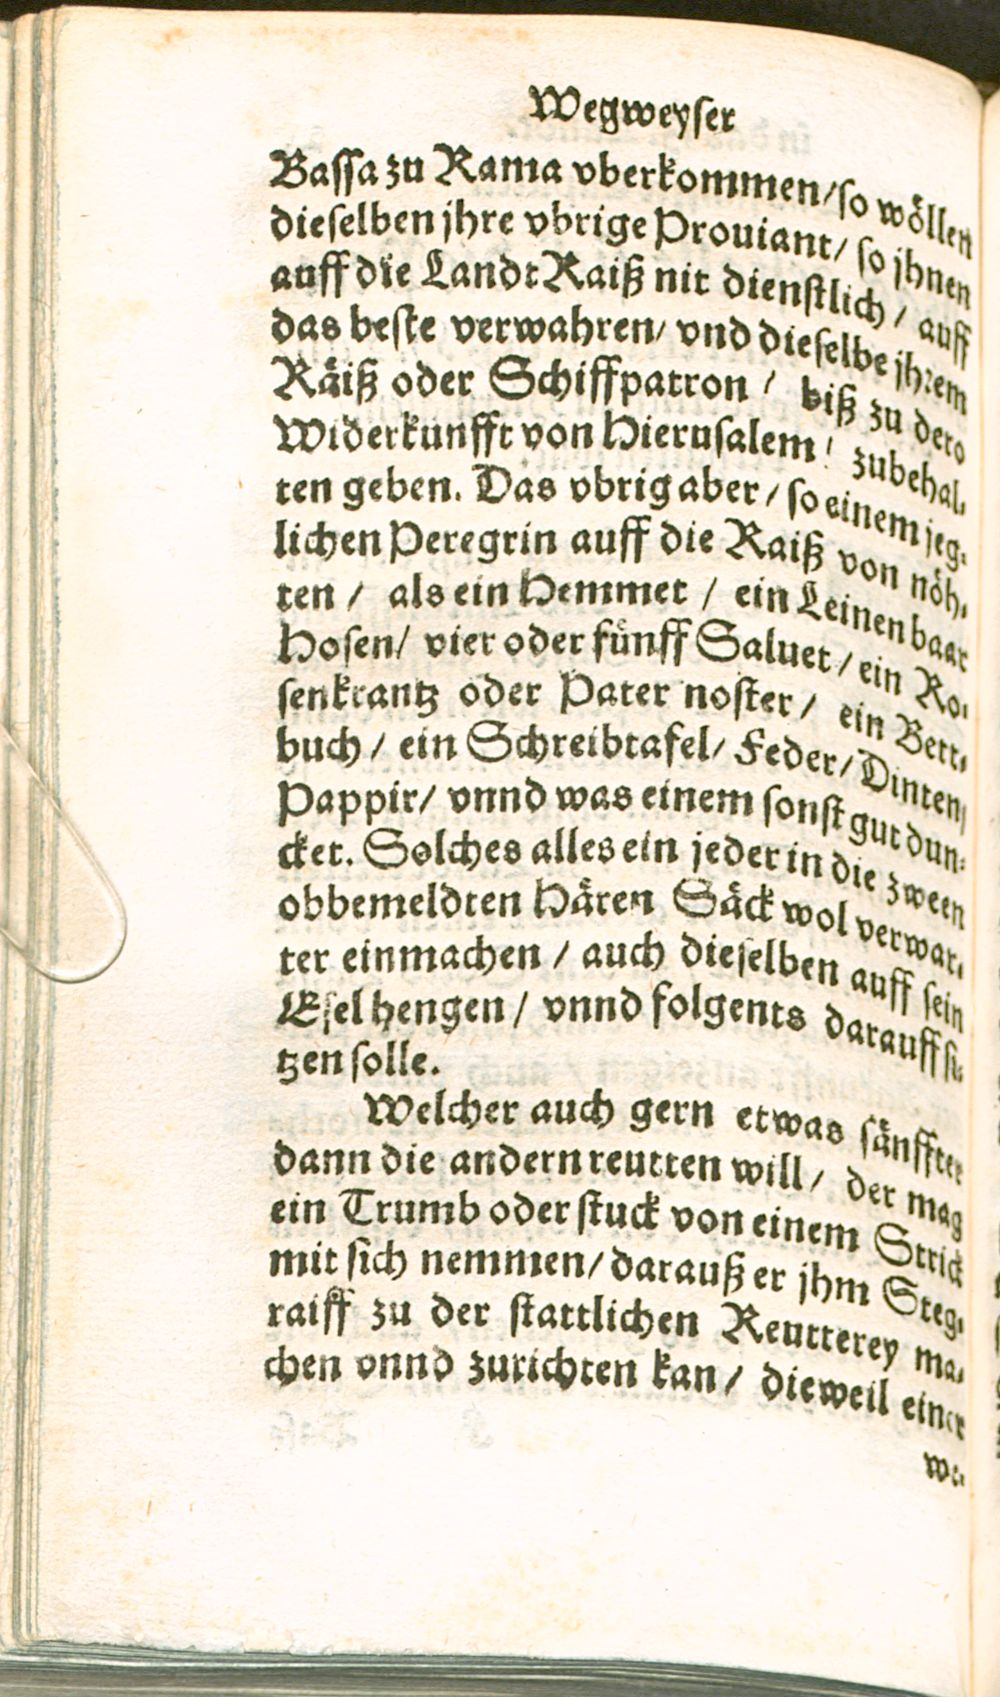 Wegweyser
Bassa zu Rama vberkommen/so wöllen
dieselben jhre vbrige Prouiant/ so jhnen
auff die Landt Raiß nit dienstlich / auff
das beste verwahren/ vnd dieselbe jhrem
Räiß oder Schiffpatron / biß zu dero
Widerkunfft von Hierusalem / zubehal-
ten geben. Das vbrig aber / so einem jeg-
lichen Peregrin auff die Raiß von nöh-
ten / als ein Hemmet / ein Leinen baar
Hosen/ vier oder fünff Saluet / ein Ro-
senkrantz oder Pater noster / ein Bett-
buch / ein Schreibtafel/ Feder/ Dinten/
Pappir/ vnnd was einem sonst gut dun-
cket. Solches alles ein jeder in die zween
obbemeldten Hären Säck wol verwar-
ter einmachen / auch dieselben auff sein
Esel hengen / vnnd folgents darauff si-
tzen solle.
Welcher auch gern etwas sänffter
dann die andern reutten will / der mag
ein Trumb oder stuck von einem Strick
mit sich nemmen/ darauß er jhm Steg-
raiff zu der stattlichen Reutterey ma-
chen vnnd zurichten kan / dieweil einer
we-